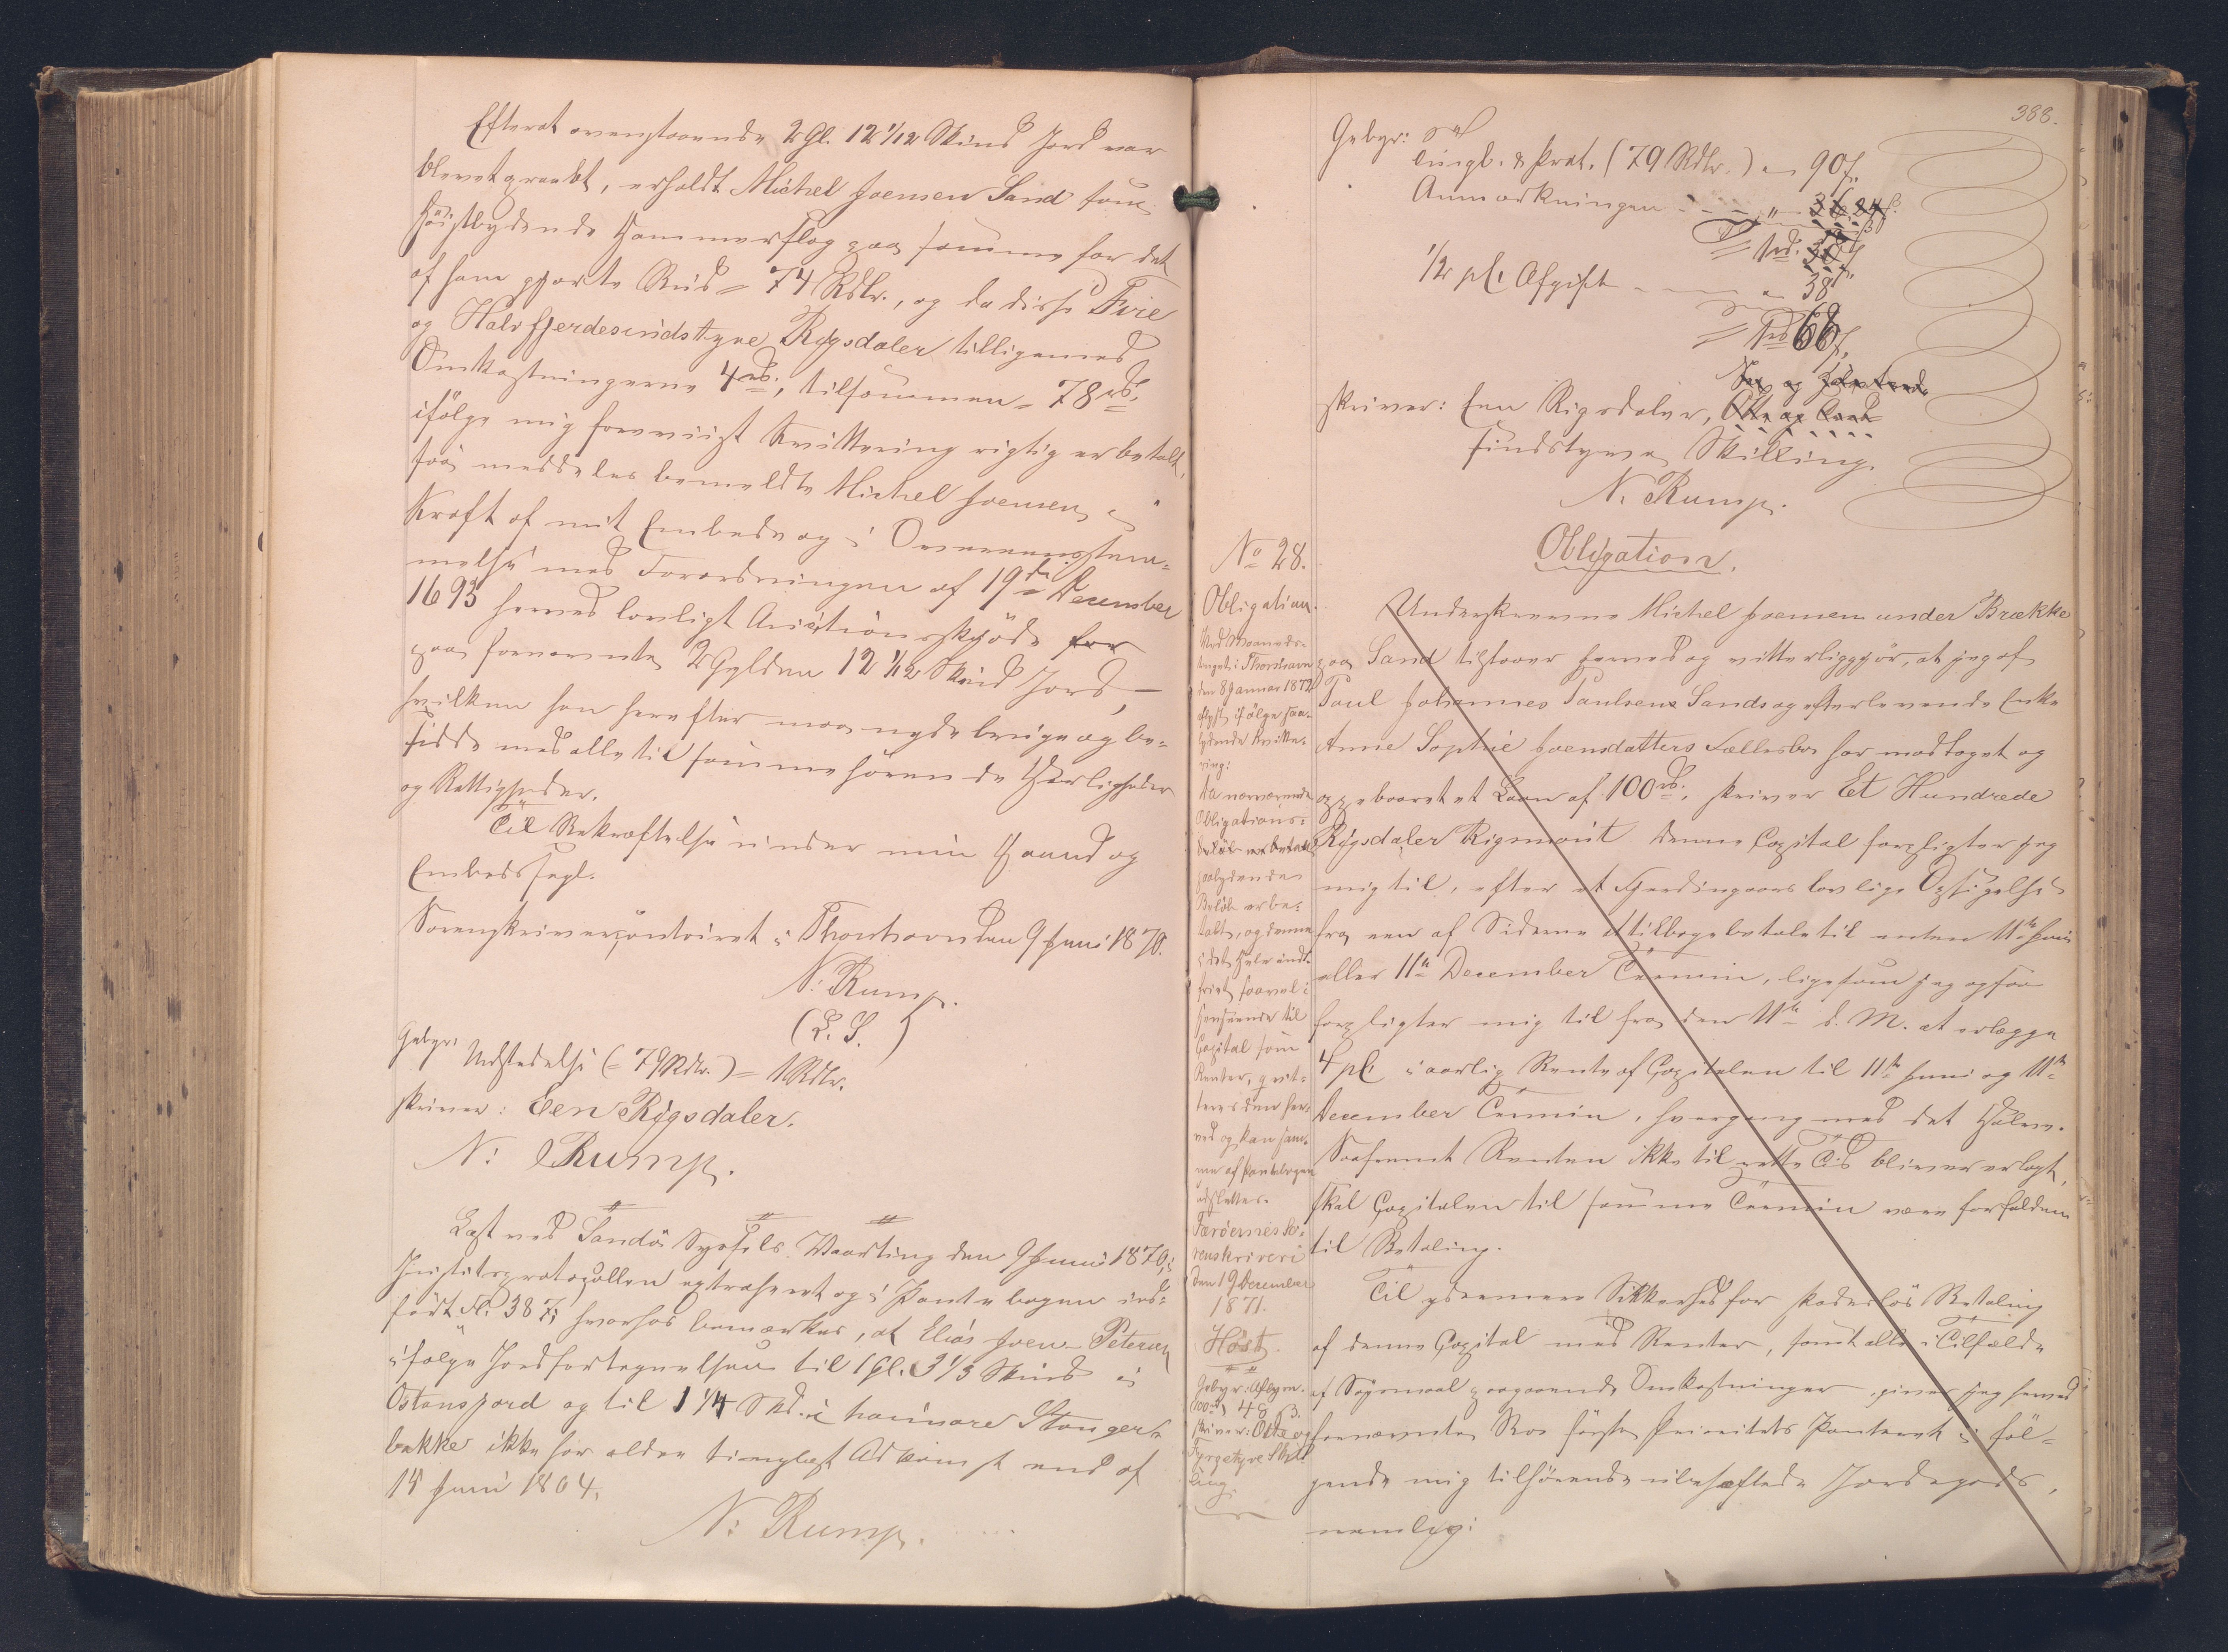 Efterat ovenstaaende 2 Gl. 12 1/12 Skind Jord var
blevet opraabt, erholdt Michel Joensen Sand som
Høistbydende Hammerslag paa samme for det
af ham gjorte Bud = 74 Rdlr., og da disse Fire
og Halvfjerdesindstyve Rigsdaler tilligemed
Omkostningerne 4 rd., tilsammen = 78 rd.
ifølge mig foreviist Kvittering rigtig er betalt,
saa meddeles bemeldte Michel Joensen i
Kraft af mit Embede og i Overeensstem-
melse med Forordningen af 19de December
1693 herved lovligt Auctionsskjøde for
paa fornævnte 2 Gylden 12 1/12 Skind Jord,
hvilken han herefter maa nyde bruge og be-
sidde med alle til samme hørende Herligheder
og Rettigheder.
Til Bekræftelse under min Haand og
Embedssegl.
Sorenskrivercontoiret i Thorshavn den 9 Juni 1870.
N. Rump.
(L. S.)
Gebyr:
Udstedelse (= 79 Rdlr.) = 1 Rdlr.
skriver: Een Rigsdaler.
N. Rump.
Læst ved Sandø Syssels Vaarting den 9 Juni 1870, i
Justitsprotocollen extraheret og i Pantebogen ind-
ført Fol. 387; hvorhos bemærkes, at Elias Joen Petersen
ifølge Jordfortegnelsen til 1 Gl. 3 1/3 Skind i
Ostansjord og til 1 1/4 Skd. i
bakke ikke har ældre tinglæst Adkomst end af
15 Juni 1864.
N. Rump.
388.
Gebyr:
Tingl. & Prot. (79 Rdlr.) = 90 ß.
Anmærkningen - - - " - 36 24 ß.
1 rd. 30 ß
1/2 pCt Afgift - - - " 38 ß
1 rd 68 ß.
skriver: Een Rigsdaler, Otte og tred-
sindstyve Skilling.
N. Rump.
No 28.
Obligation.
Ved Maaneds-
tinget i Thorshavn
den 8 Januar 1872
aflyst ifølge saa-
lydende Kvitte-
ring:
Da nærværende
Obligations-
Beløb er betalt
paalydende
Beløb er be-
talt, og denne
i det Hele ind-
friet saavel i
Henseende til
Capital som
Renter, qvit-
teres den her-
ved og kan sam-
me af Pantebogen
udslettes.
Færøernes So-
renskriveri
den 19 December
1871.
Høst.
Gebyr: Aflysn.
100 rd 48 ß.
skriver: Otte og
Fyrgetyve Skil-
ling.
Obligation.
Underskrevne Michel Joensen under Brække
paa Sand tilstaaer herved og vitterliggjør, at jeg af
Poul Johannes Poulsens Sands og efterlevende Enke
Anne Sophie Joensdatters Fællesbo har modtaget og
oppebaaret et Laan af 100 rd., skriver Et Hundrede
Rigsdaler Rigsmønt. Denne Capital forpligter jeg
mig til, efter et Fjerdingaars lovlige Opsigelse
fra een af Siderne at tilbagebetale til enten 11te Juni
eller 11te December Termin, ligesom jeg ogsaa
forpligter mig til fra den 11te d. M. at erlægge
4 pCt i aarlig Rente af Capitalen til 11te Juni og 11te
December Termin, hvergang med det Halve.
Saafremt Renten ikke til rette Tid bliver erlagt,
skal Capitalen til samme Termin være forfalden
til Betaling.
Til ydermere Sikkerhed for skadesløs Betaling
af denne Capital med Renter, samt alle i Tilfælde
af Søgsmaal paagaaende Omkostninger, giver jeg herved
fornævnte Bo første Prioritets Panteret i føl-
gende mig tilhørende ubehæftede Jordegods,
nemlig: